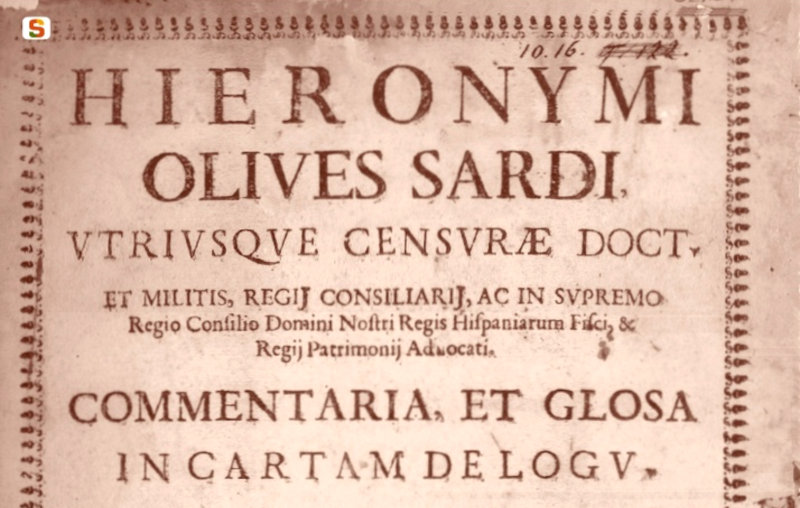 S
10. 16.
HIERONYMI
OLIVES SARDI,
VTRIVSQVE CENSVRÆ DOCT,
ET MILITIS, REGIJ CONSILIARIJ, AC IN SVPREMO
Regio Conſilio Domini Noſtri Regis Hiſpaniarum Fiſci, &
Regij Patrimonij Aduocati.
COMMENTARIA, ET GLOSA
IN CARTAM DE LOGV,